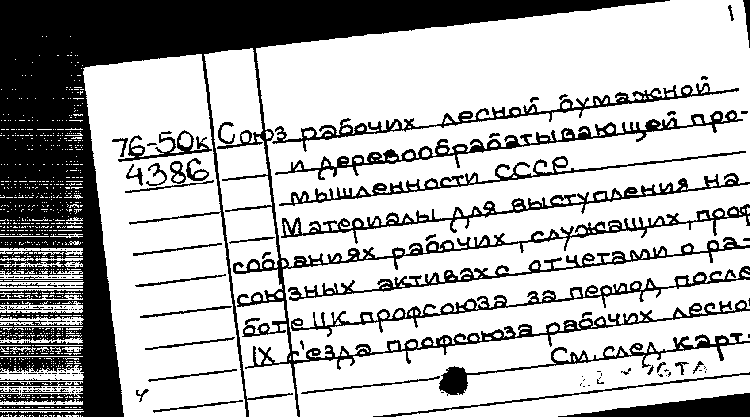 1
76-50к Союз рабочих лесной, бумажной
4386 и деревообрабатывающей про-
мышленности СССР.
Материалы для выступления на
собраниях рабочих, служащих, проф
союзных активах о отчетами о ра-
боте ЦК профсоюза за период после
IX с'езда профсоюза рабочих лесной
См. след. карт.